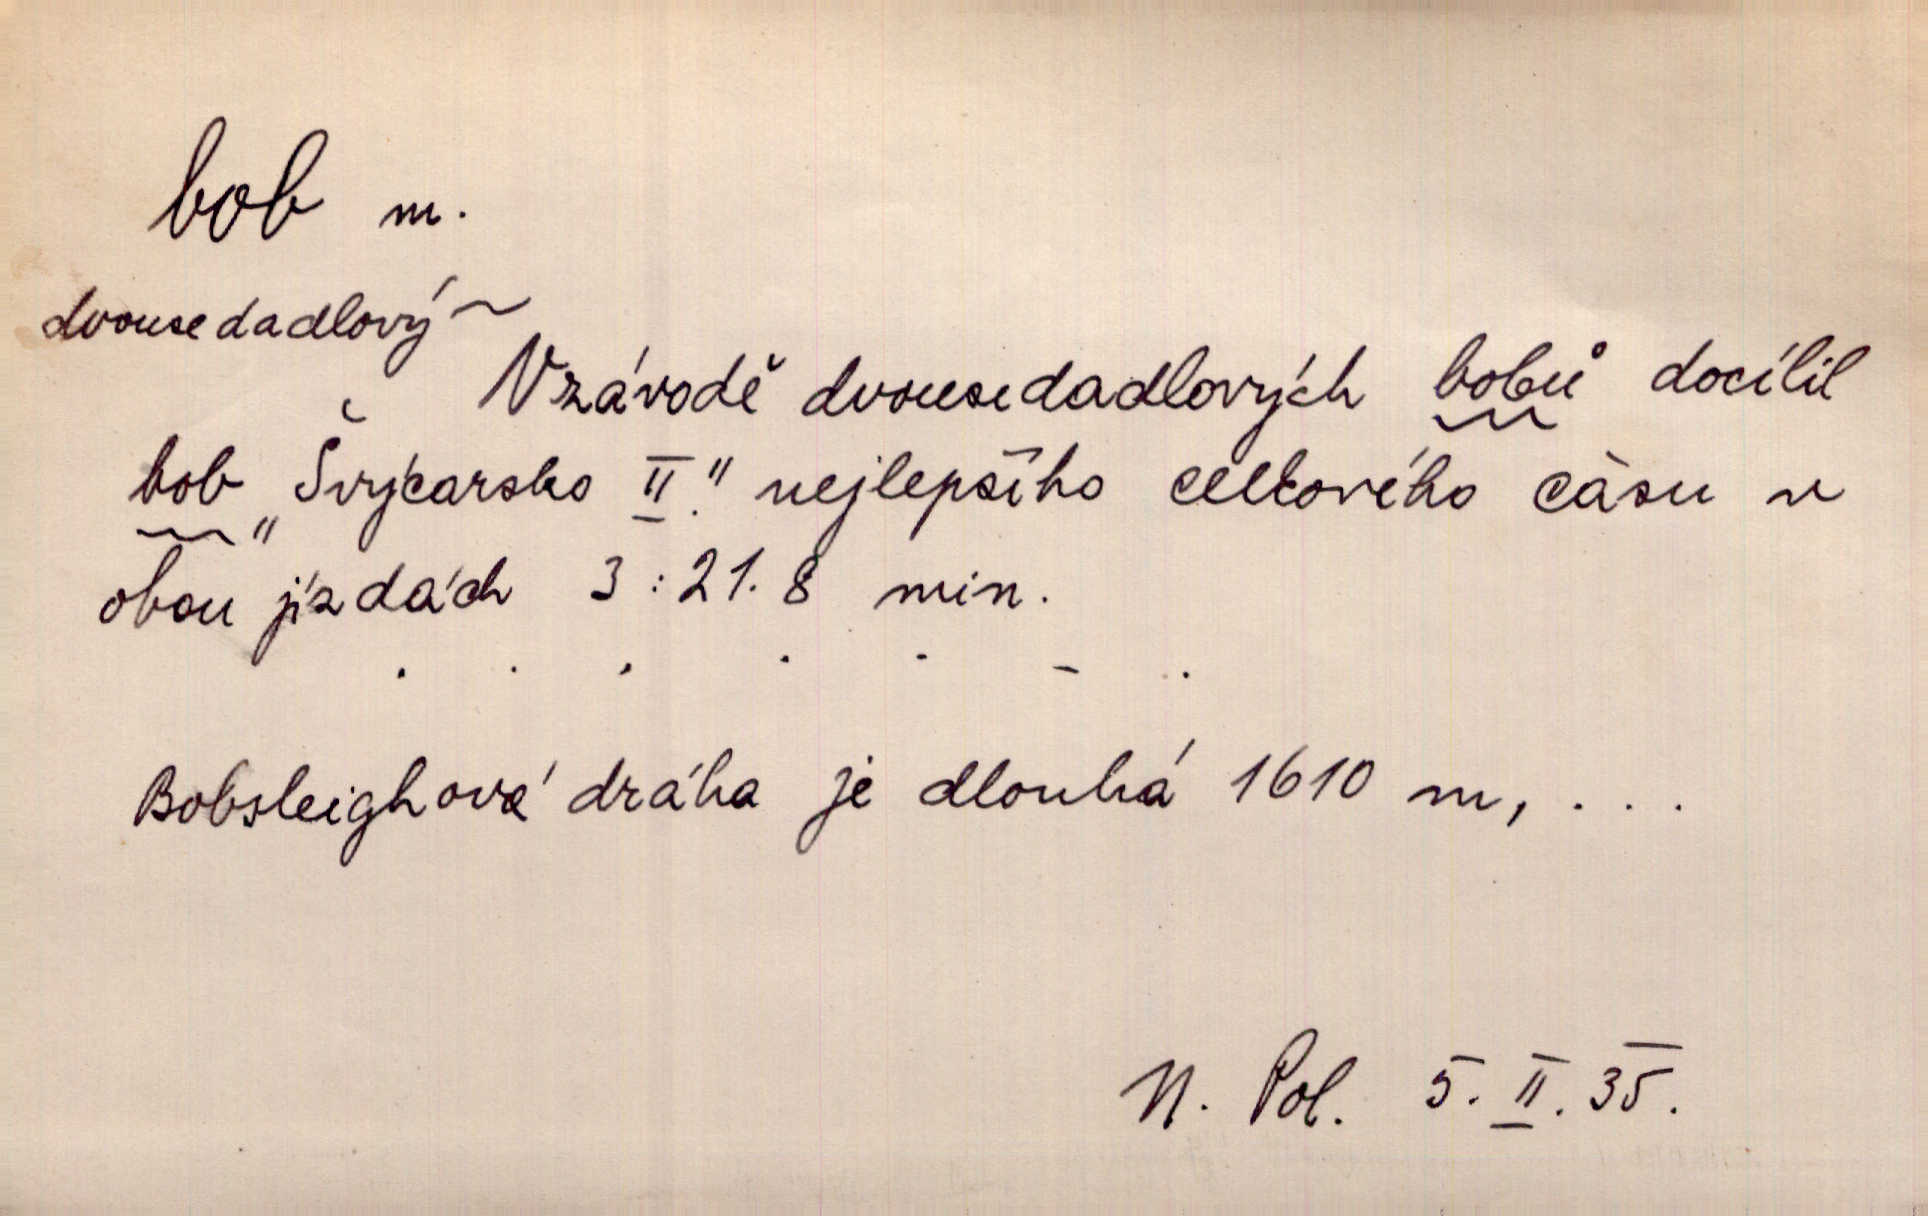 bob m.
dvousedadlový ~
V závodě dvousedadlových bobů docílil
bob „Švýcarsko II." nejlepšího celkového času v
obou jízdách 3:21.8 min.
. . . . . . .
Bobsleighová dráha je dlouhá 1610 m, . . .
N. Pol. 5. II. 35.